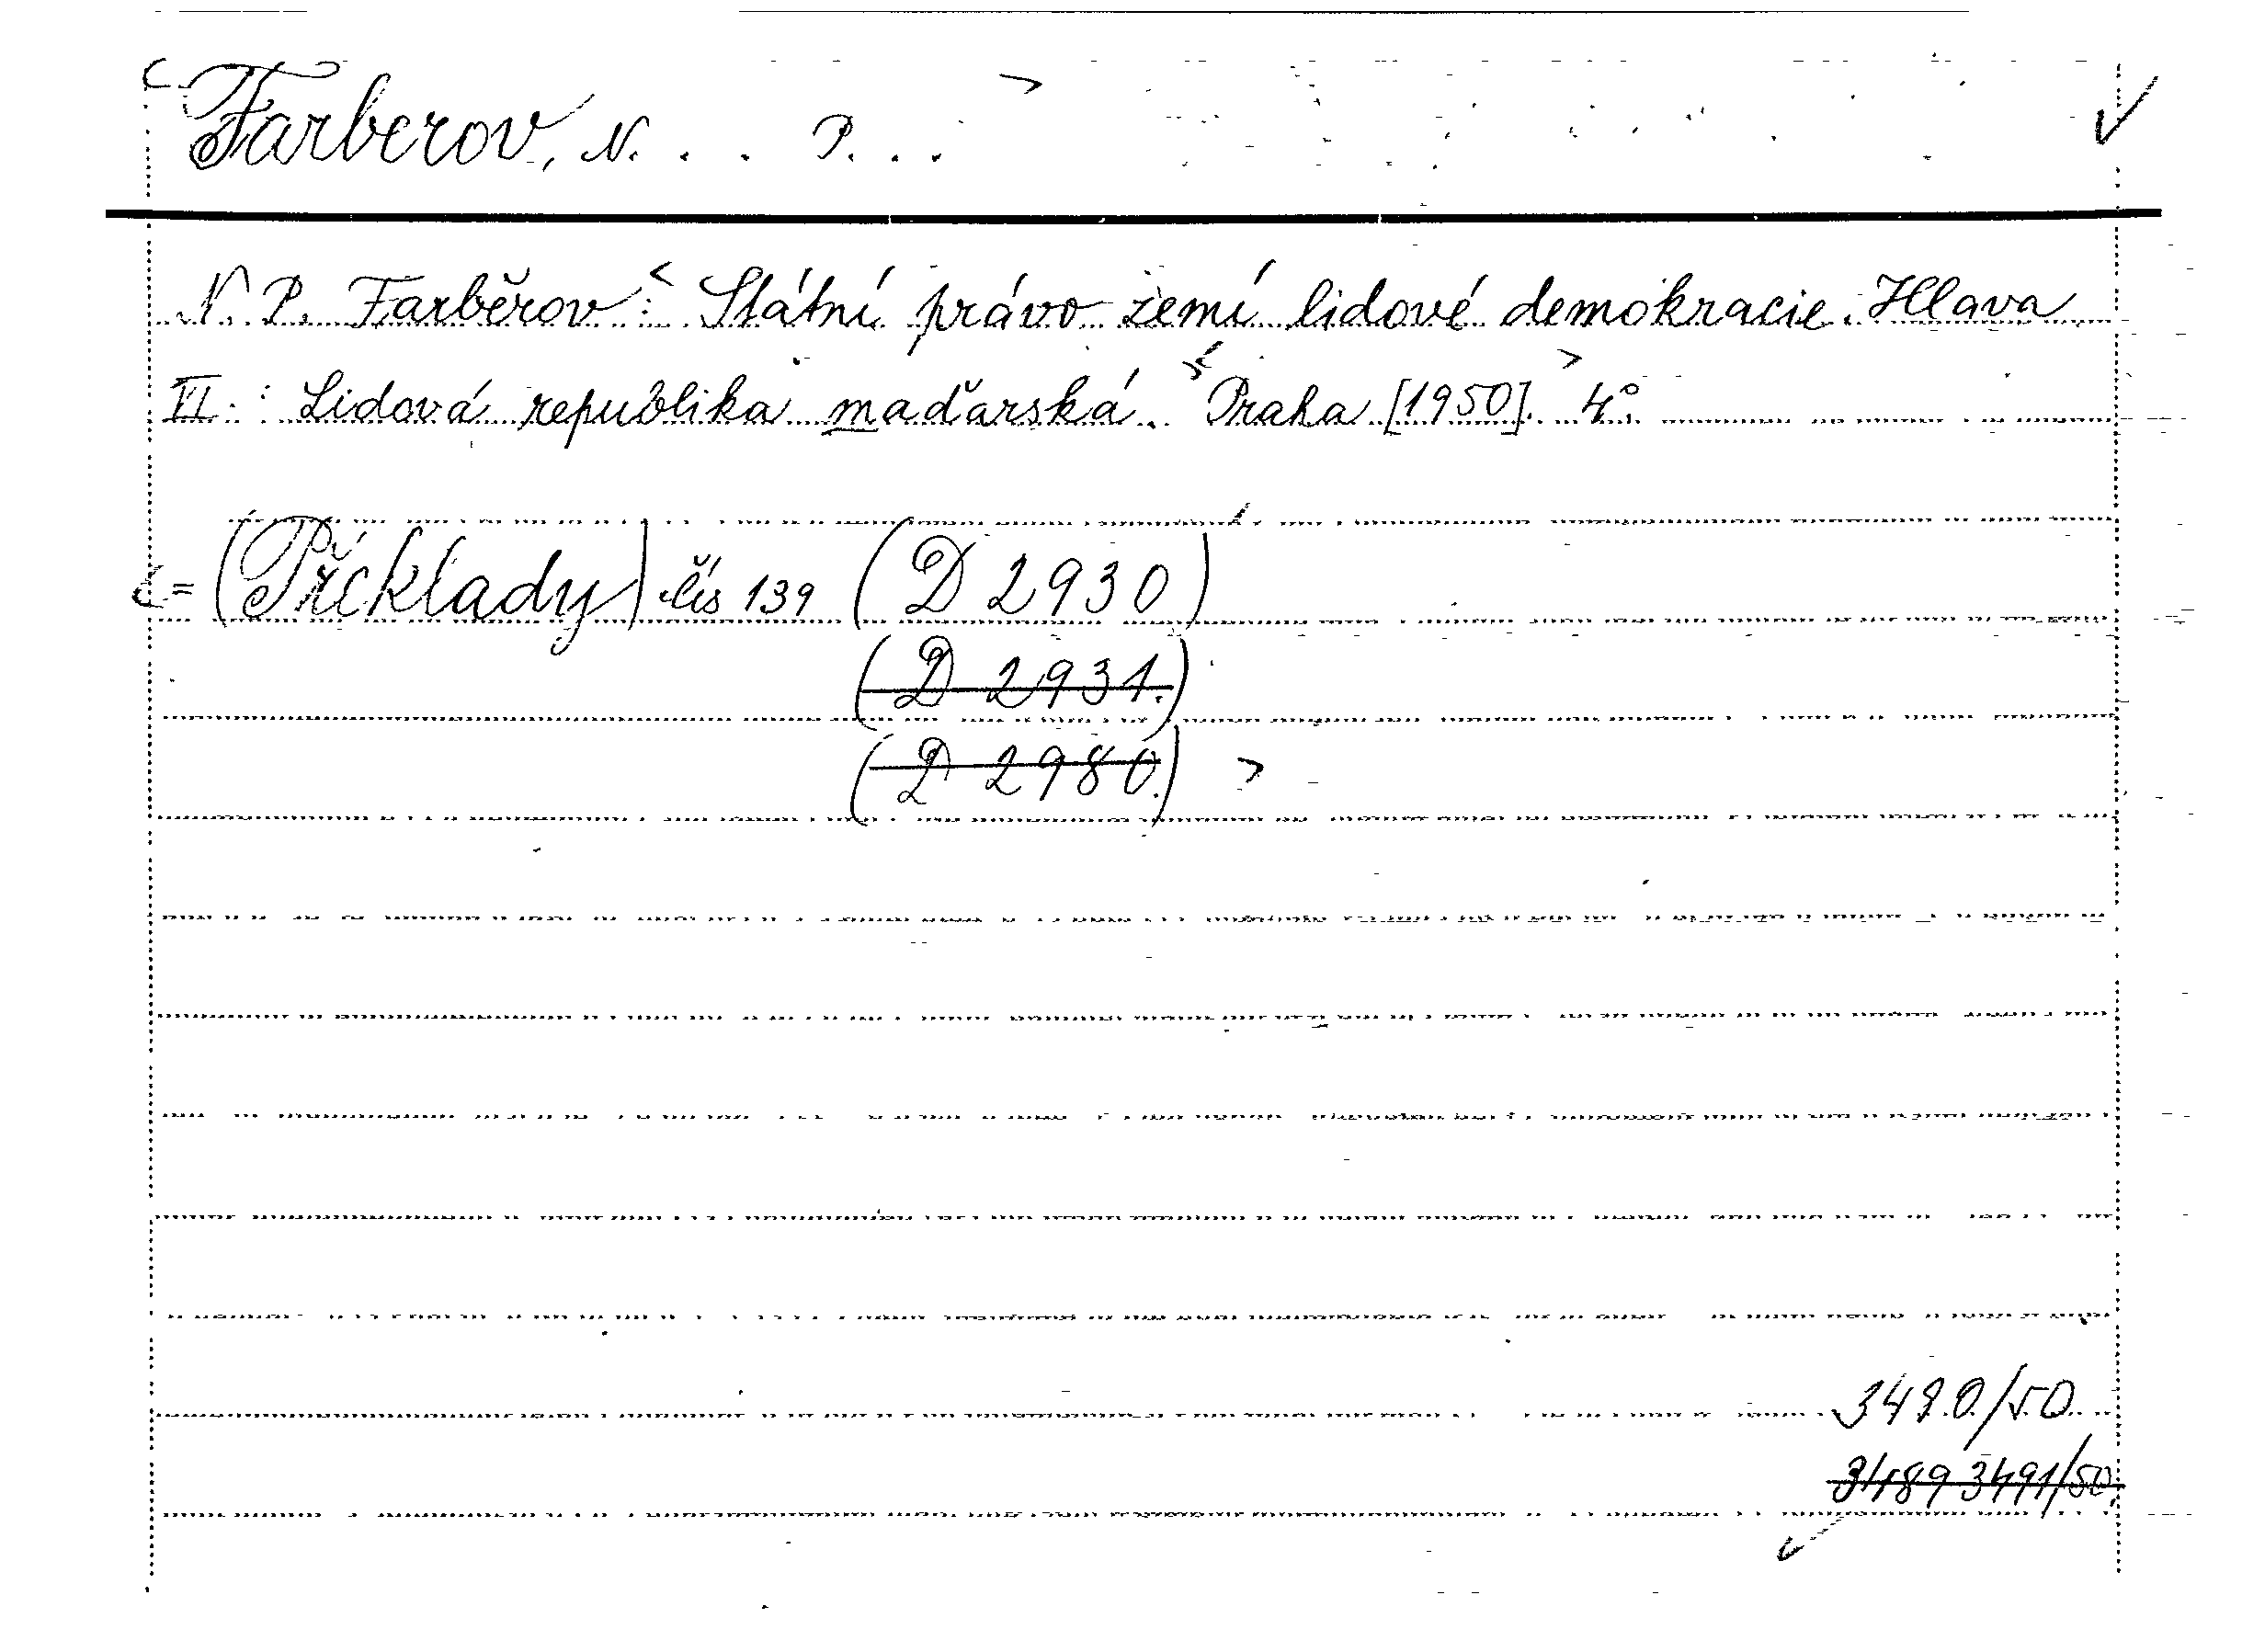 Farberov, N. . . P. . .
N. P. Farběrov: Státní právo zemí lidové demokracie. Hlava
VI.: Lidová republika maďarská. Praha [1950]. 4°.
= (Překlady) čís 139 (D 2930)
(D 2931.)
(D 2980.)
3490/50
3489 3491/50